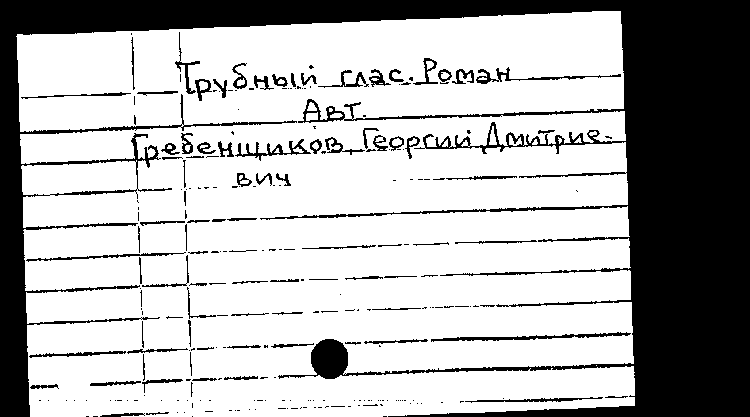 Трубный глас. Роман
Авт.
Гребенщиков, Георгий Дмитрие-
вич